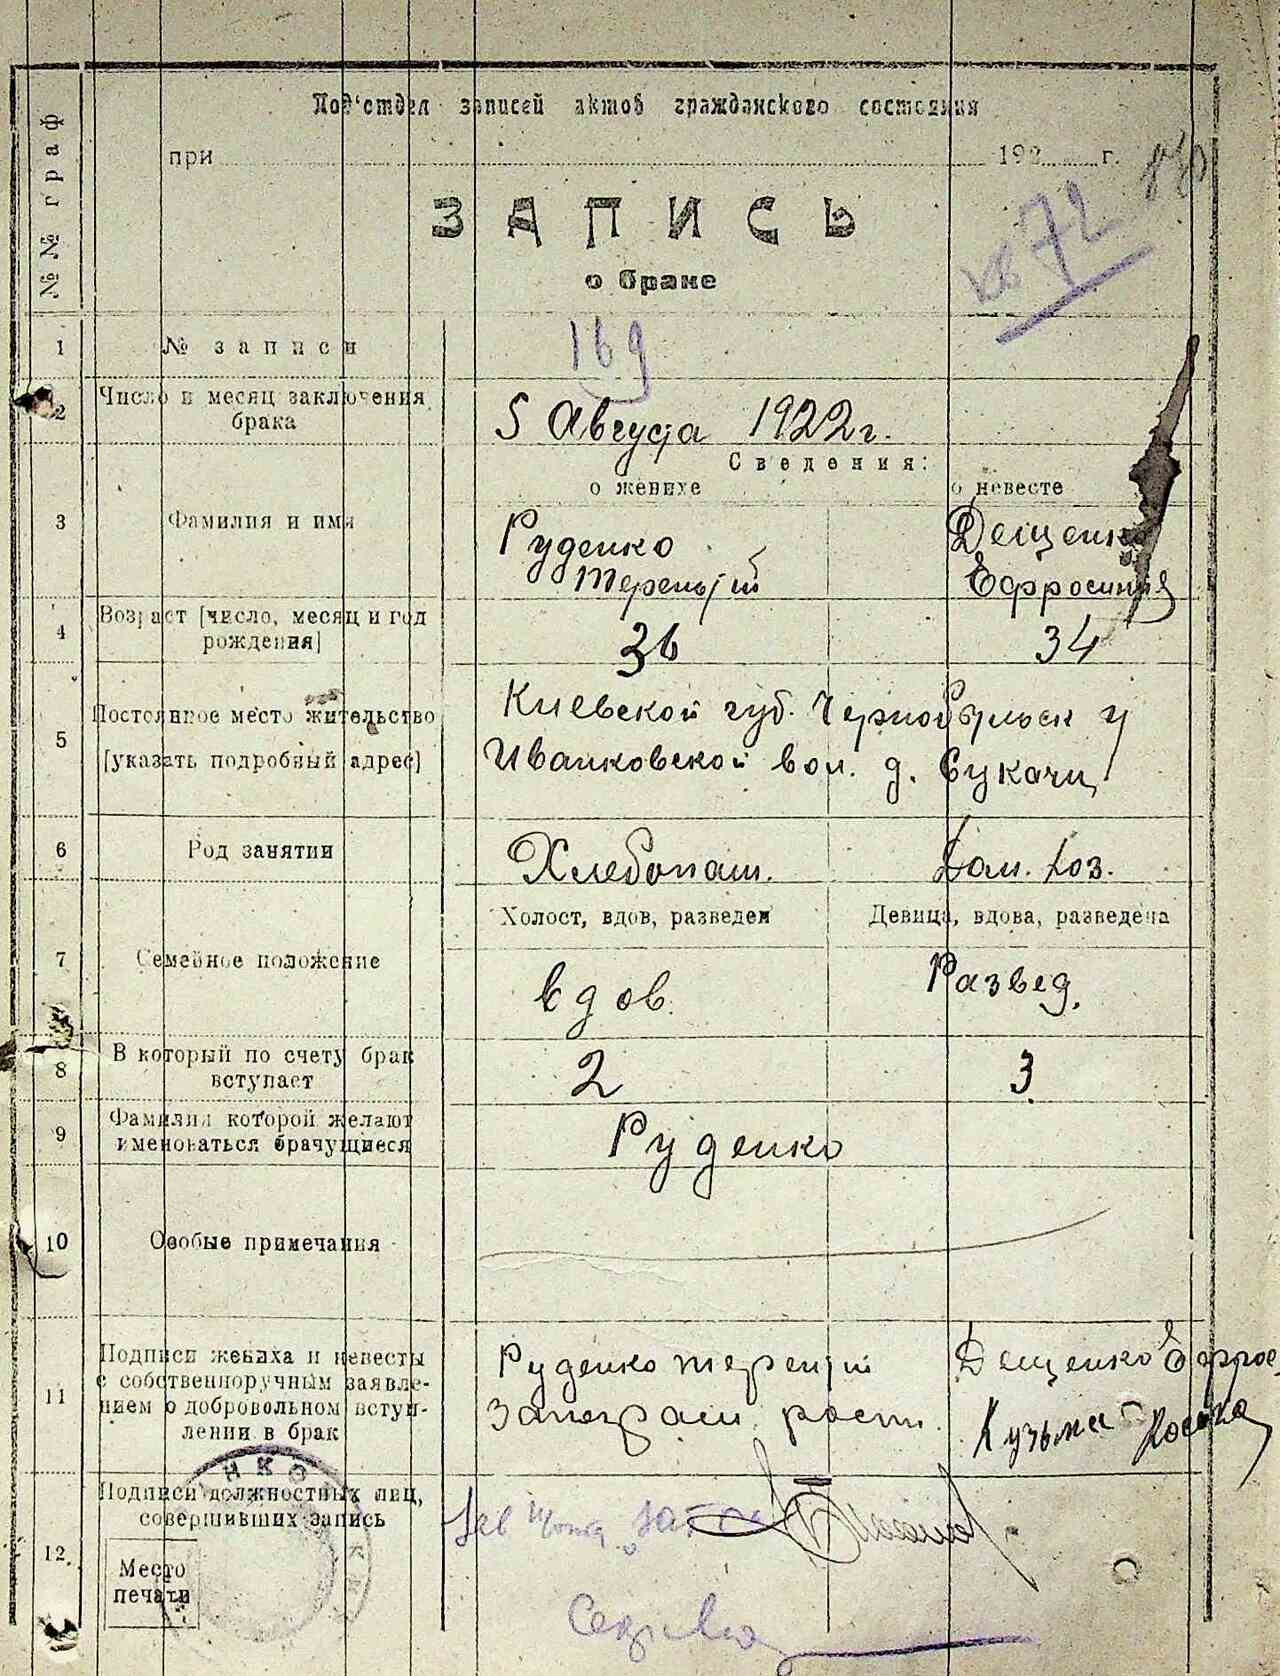 Под'отдел записей актов гражданского состояния
при 192 г.
№ 72
ЗАПИСЬ
о браке
№№ граф
1 № записи 169
2 Число и месяц заключения брака 5 Августа 1922 г.
Сведения:
о женихе о невесте
3 Фамилия и имя Руденко Дещенко
Терентий Ефросиния
4 Возраст [число, месяц и год рождения] 36 34
5 Постоянное место жительство Киевской губ. Чернобыльск у
[указать подробный адрес] Иванковской вол. д. Сукачи
6 Род занятии Хлебопаш. Дом. хоз.
Холост, вдов, разведен Девица, вдова, разведена
7 Семейное положение вдов. Развед.
8 В который по счету брак вступает 2 3
9 Фамилия которой желают именоваться брачущиеся Руденко
10 Особые примечания
11 Подписи жениха и невесты Руденко Терентий Дещенко Ефрос
с собственноручным заявле-
нием о добровольном вступ- Кузьма
лении в брак
12. Подписи должностных лиц,
совершивших запись
Место
печати